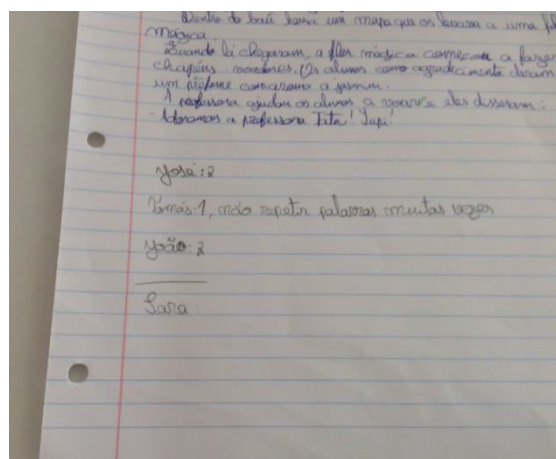 Dentro do baú havia um mapa que os levava a uma
mágica.
Quando lá chegaram, a flor mágica começou a fazer
chapéus voadores. Os alunos como agradecimento deram
um perfume com aroma a jasmim.
A professora ajudou os alunos a voar e eles disseram:
- Adoramos a professora Tata! Iupi!
José: 2
Tomás-1, não repetir palavras muitas vezes
João: 2
Sara